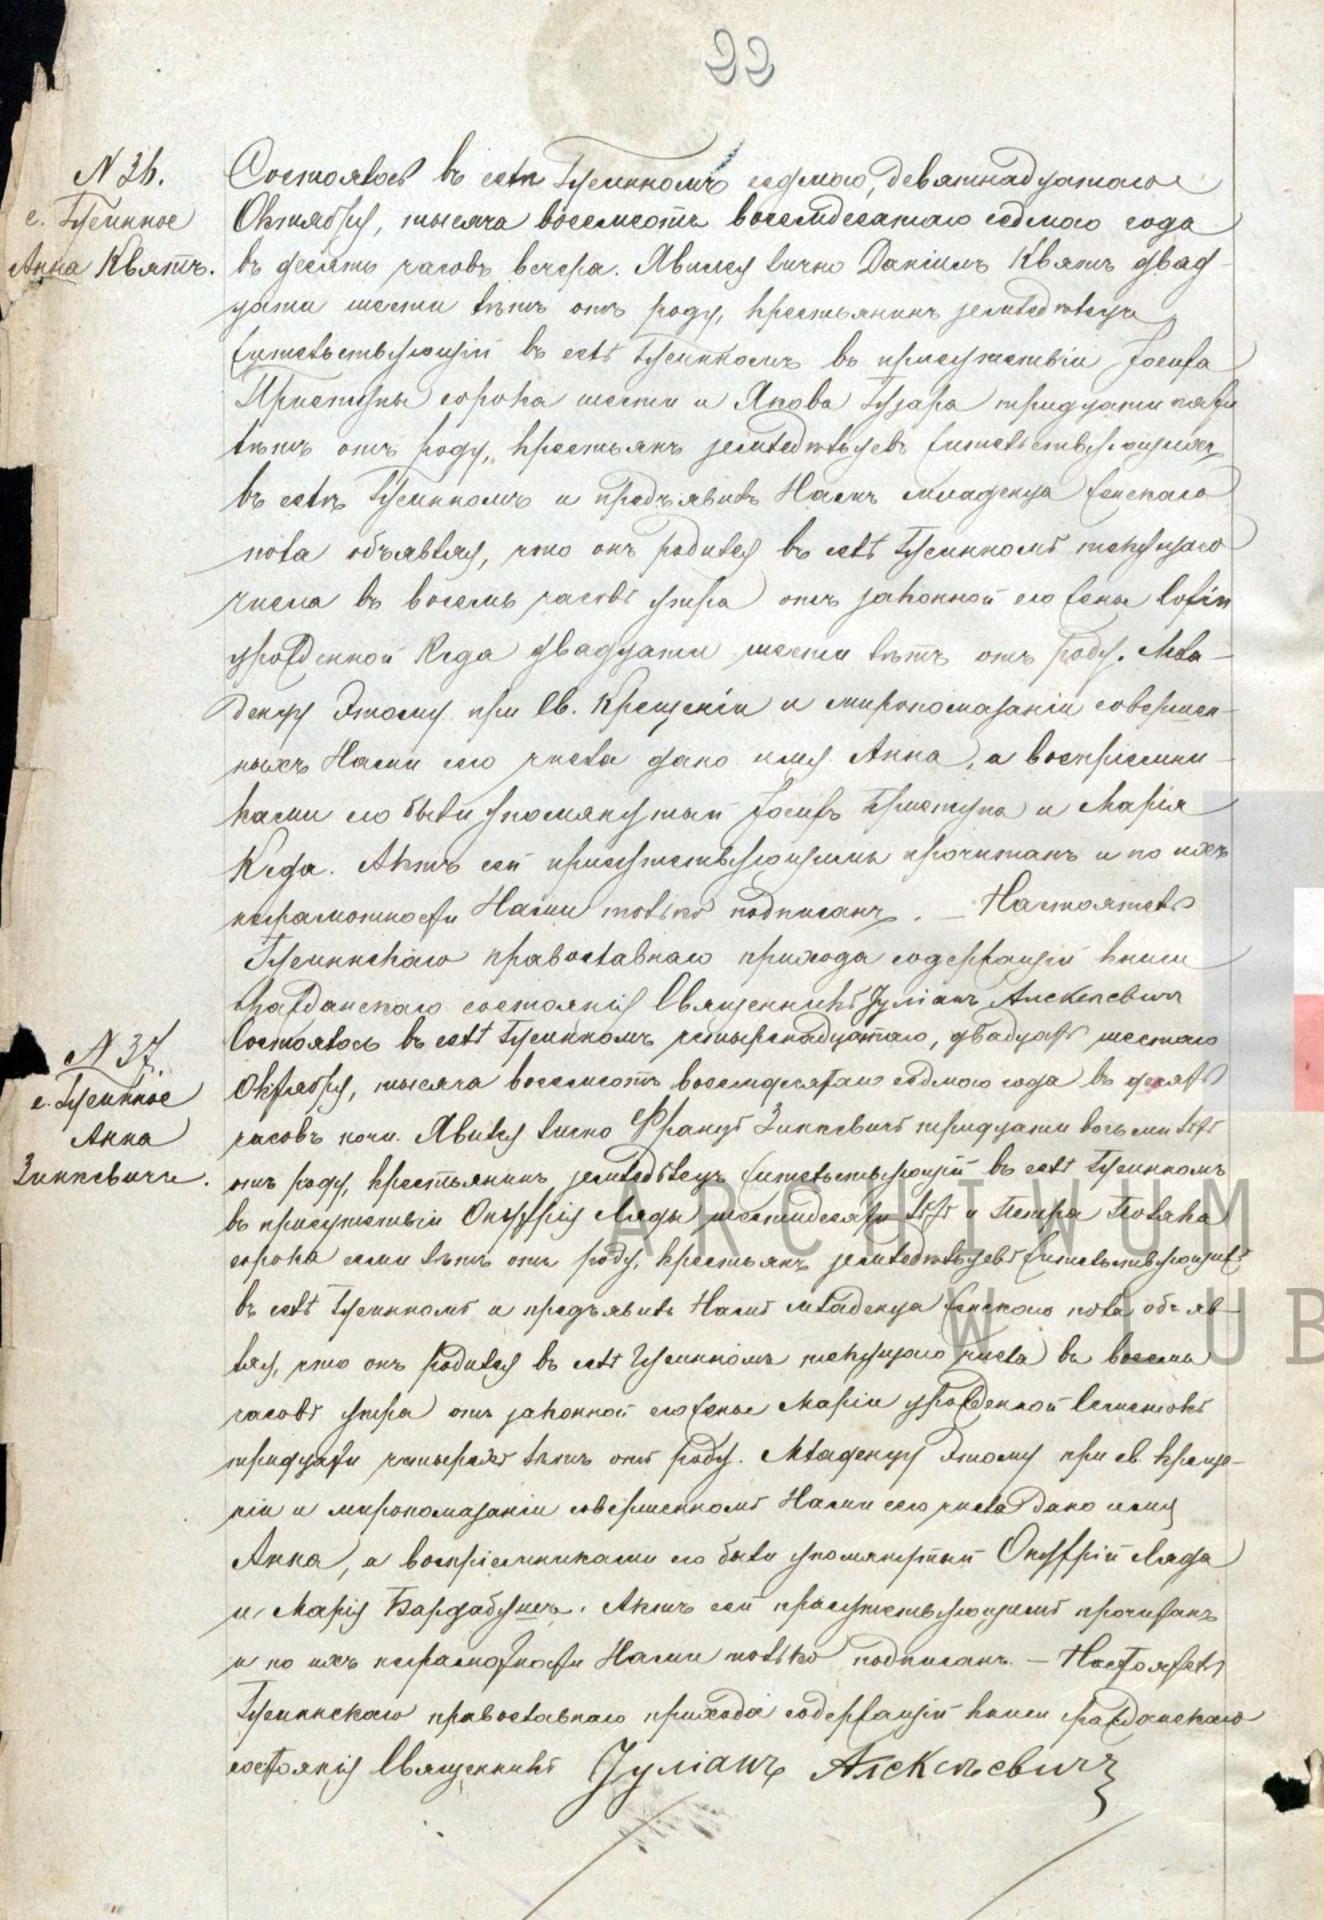 22
N 36.
с. Гусинное
Анна Квятъ.
Состоялось въ селѣ Гусинномъ седмаго, девятнадцатаго
Октября, тысяча восемьсотъ восемдесятаго седмаго года
въ десять часовъ вечера. Явился лично Даніилъ Квятъ двад-
цати шести лѣтъ отъ роду, крестьянинъ земледѣлецъ
жительствующій въ селѣ Гусинномъ въ присутствіи Іосифа
Приступы сорока шести и Якова Гузара тридцати пяти
лѣтъ отъ роду, крестьянъ земледѣльцевъ жительствующихъ
въ селѣ Гусинномъ и предъявилъ Намъ младенца женскаго
пола объявляя, что онъ родился въ селѣ Гусинномъ текущаго
числа въ восемь часовъ утра отъ законной его жены Софіи
урожденной Кеда двадцати шести лѣтъ отъ роду. Мла-
денцу этому при Св. Крещеніи и миропомазаніи совершен-
ныхъ Нами сего числа дано имя Анна, а воспріемни-
ками его были упомянутый Іосифъ Приступа и Марія
Кеда. Актъ сей присутствующимъ прочитанъ и по ихъ
неграмотности Нами только подписанъ. — Настоятель
Гусиннскаго православнаго прихода содержащій книги
гражданскаго состоянія Священникъ Іуліанъ Алексѣевичъ
N 37.
с. Гусинное
Анна
Зинкевичъ.
Состоялось въ селѣ Гусинномъ четырнадцатаго, двадцать шестаго
Октября, тысяча восемьсотъ восемдесятаго седмаго года въ десять
часовъ ночи. Явился лично Францъ Зинкевичъ тридцати восьми лѣтъ
отъ роду, крестьянинъ земледѣлецъ жительствующій въ селѣ Гусинномъ
въ присутствіи Онуфрія Ляды шестидесяти лѣтъ и Петра Поляка
сорока семи лѣтъ отъ роду, крестьянъ земледѣльцевъ жительствующихъ
въ селѣ Гусинномъ и предъявилъ Намъ младенца женскаго пола объяв-
ляя, что онъ родился въ селѣ Гусинномъ текущаго числа въ восемь
часовъ утра отъ законной его жены Маріи урожденной
тридцати четырехъ лѣтъ отъ роду. Младенцу этому при св. креще-
ніи и миропомазаніи совершенномъ Нами сего числа дано имя
Анна, а воспріемниками его были упомянутый Онуфрій Ляда
и Марія Бардабушъ. Актъ сей присутствующимъ прочитанъ
и по ихъ неграмотности Нами только подписанъ. — Настоятель
Гусиннскаго православнаго прихода содержащій книги гражданскаго
состоянія Священникъ Іуліанъ Алексѣевичъ
ARCHIWUM
W LUB